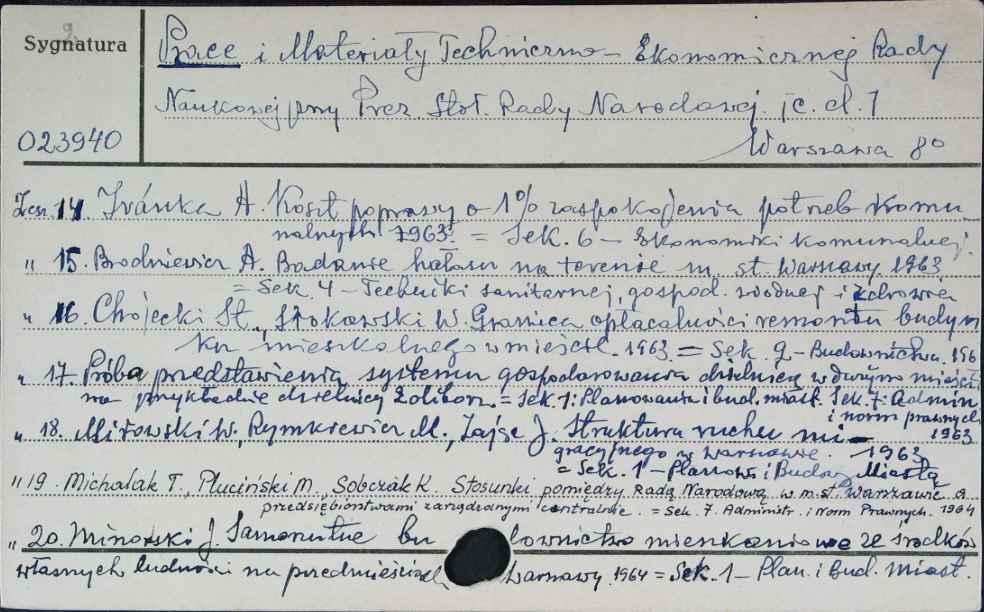 Sygnatura
2.
Prace i Materiały Techniczno-Ekonomicznej Rady
Naukowej przy Prez. Stoł. Rady Narodowej. [c.d.]
023940
Warszawa 8°
Zesz. 14. Ivánka A. Koszt poprawy o 1% zaspokojenia potrzeb komu-
nalnych 1963. = Sek. 6 – Ekonomiki komunalnej.
" 15. Brodniewicz A. Badanie hałasu na terenie m. st. Warszawy. 1963
= Sek. 4 – Techniki sanitarnej, gospod. wodnej i zdrowia
" 16. Chojecki St., Stokowski W. Granica opłacalności remontu budyn
ku mieszkalnego w mieście. 1963. = Sek. 2 – Budownictwa. 196
" 17. Próba przedstawienia systemu gospodarowania dzielnicą w dużym mieście
na przykładzie dzielnicy Żoliborz. = Sek. 1: Planowania i bud. miast. Sek. 7: Admin
i norm prawnych
1963
" 18. Mirowski W., Rymkiewicz M., Zając J. Struktura ruchu mi-
gracyjnego w Warszawie. 1963
= Sek. 1 – Planow. i Budow. Miasta
" 19. Michalak T., Pluciński M., Sobczak K. Stosunki pomiędzy Radą Narodową w m. st. Warszawie a
przedsiębiorstwami zarządzanymi centralnie. = Sek. 7. Administr. i Norm Prawnych. 1964
" 20. Minorski J. Samorzutne bu lownictwo mieszkaniowe ze środków
własnych ludności na przedmieściach Warszawy. 1964 = Sek. 1 – Plan. i bud. miast.